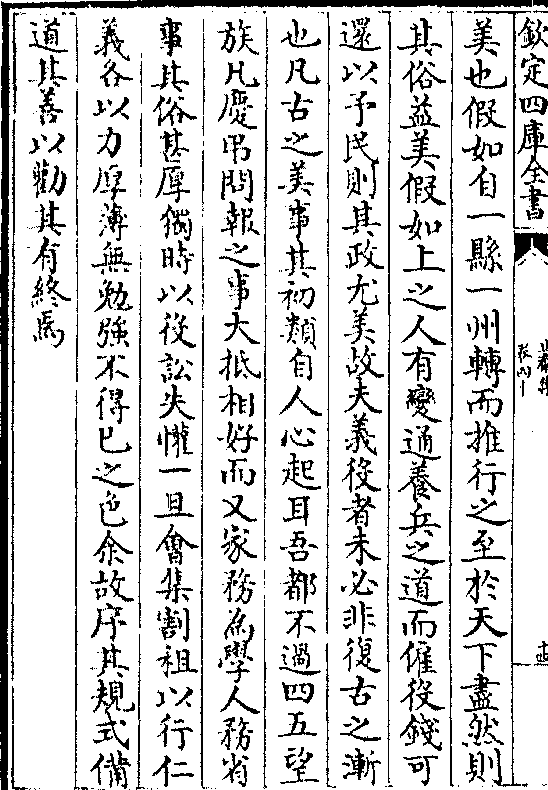 欽定四庫全書
美也假如自一縣一州轉而推行之至於天下盡然則
其俗益美假如上之人有變通養兵之道而僱役錢可
還以予民則其政尤美故夫義役者未必非復古之漸
也凡古之美事其初類自人心起耳吾都不過四五望
族凡慶弔問報之事大抵相好而又家務為學人務省
事其俗甚厚獨時以役訟失懽一旦會集割租以行仁
義各以力厚薄無勉強不得已之色余故序其規式備
道其善以勸其有終焉